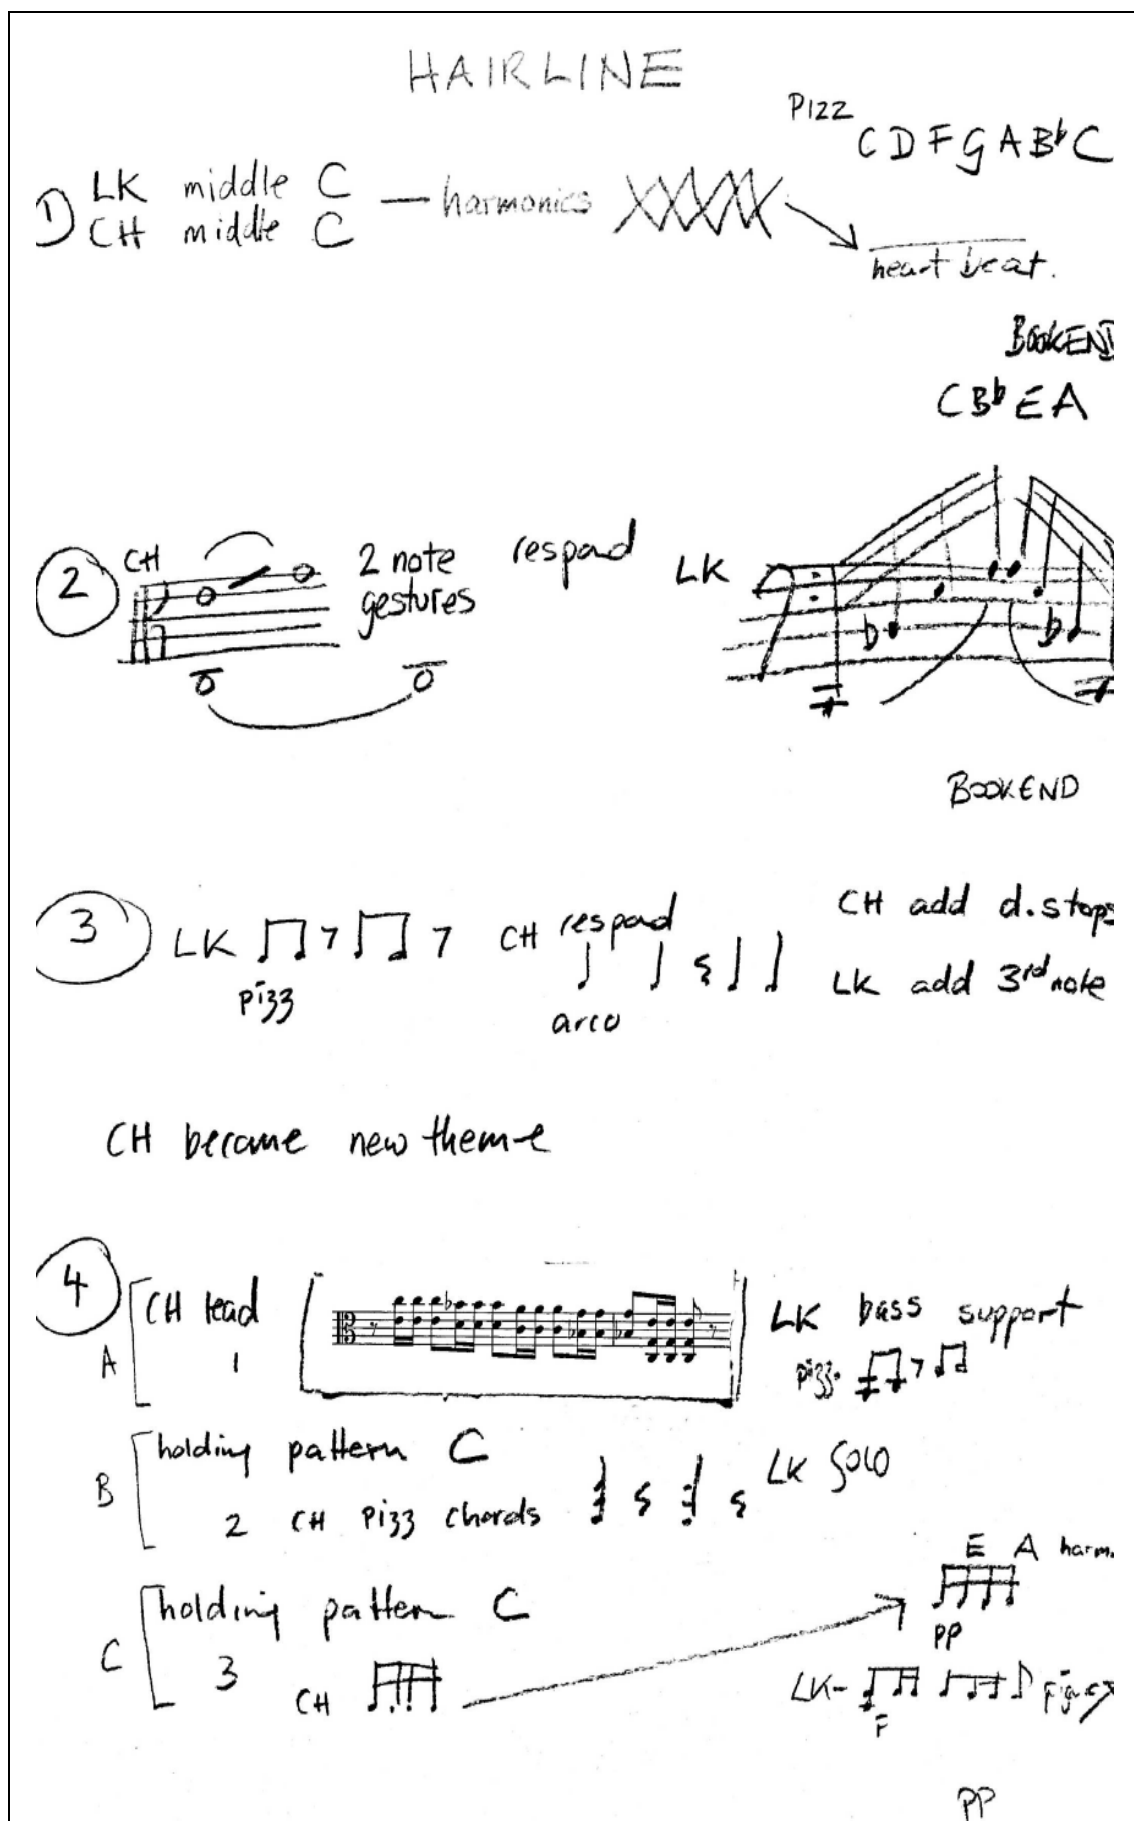 HAIRLINE
PIZZ
C D F G A B♭ C
1) LK middle C — harmonics
CH middle C
heart beat.
BOOKEND
C B♭ E A
2 CH 2 note respond LK
gestures
BOOKEND
3 LK pizz CH respond arco CH add d.stops
LK add 3rd note
CH become new theme
4
A CH lead LK bass support
1 pizz.
B holding pattern C
2 CH pizz chords LK Solo
E A harm.
C holding pattern C
pp
3 CH LK-
F
PP